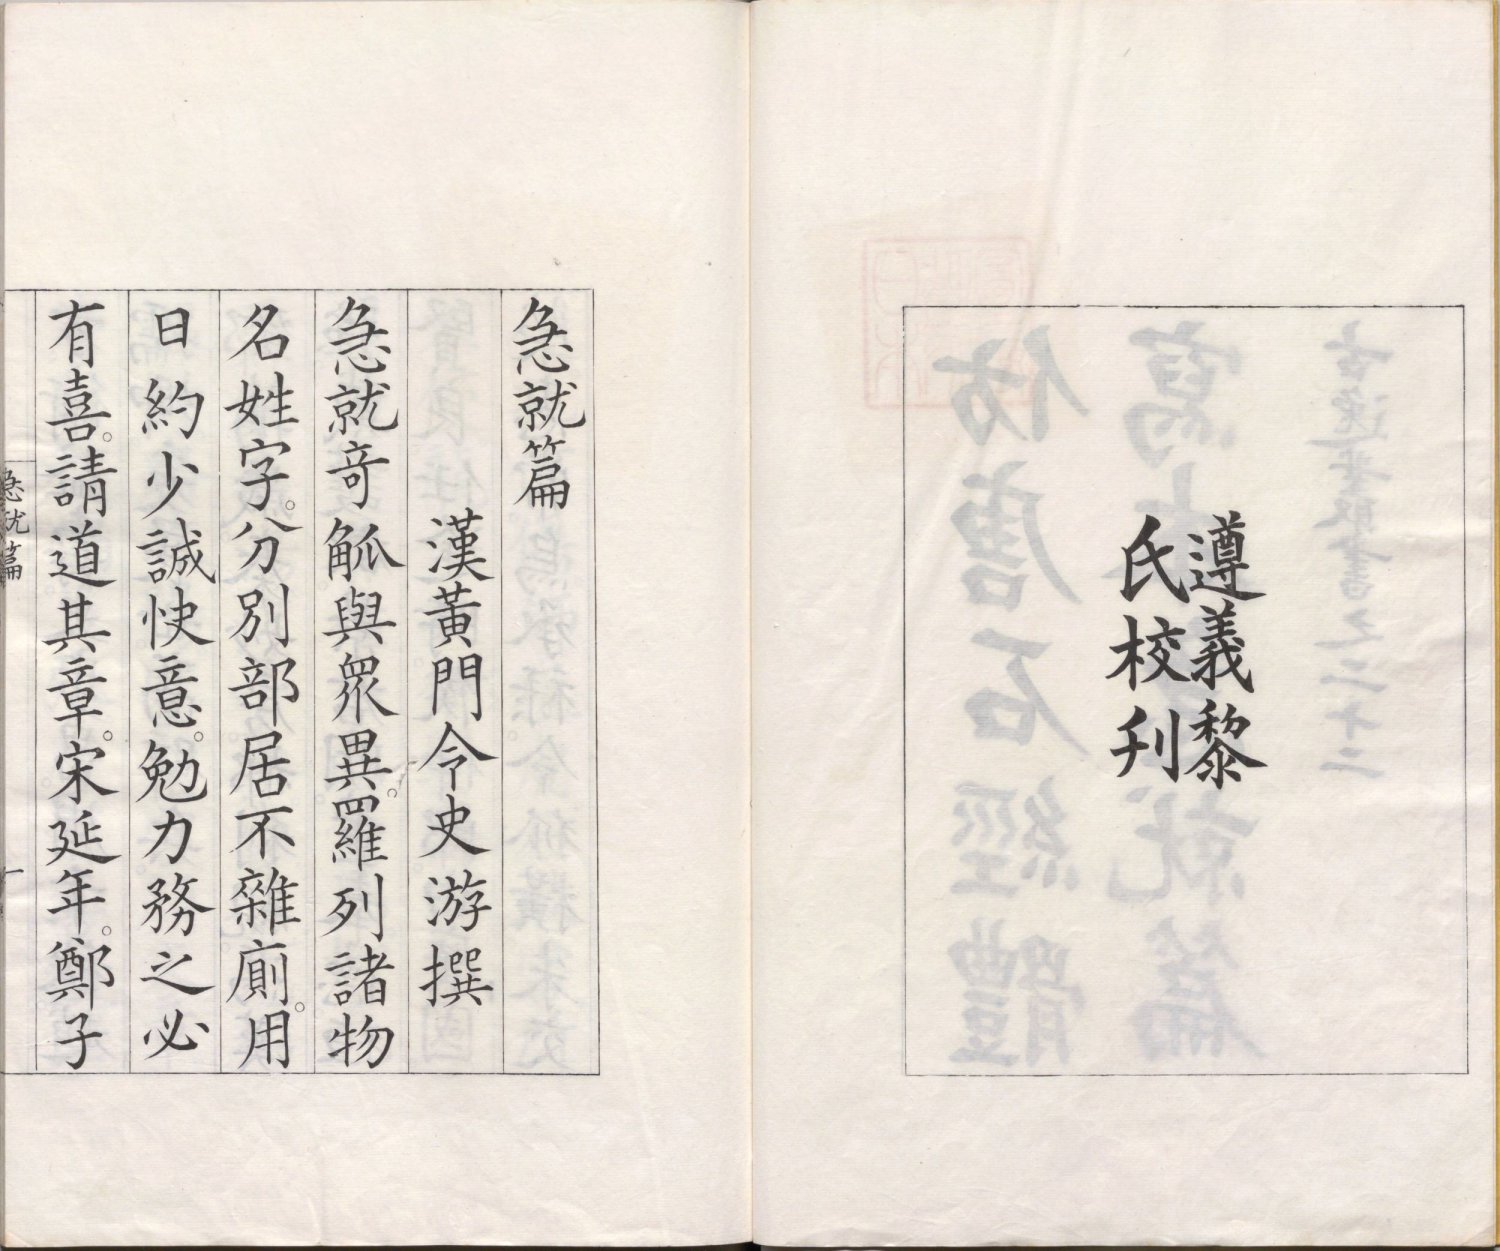 遵義黎
氏校刋
急就篇
漢黃門令史游撰
急就奇觚與眾異。羅列諸物
名姓字。分別部居不雜廁。用
日約少誠快意。勉力務之必
有喜。請道其章。宋延年。鄭子
急就篇
一